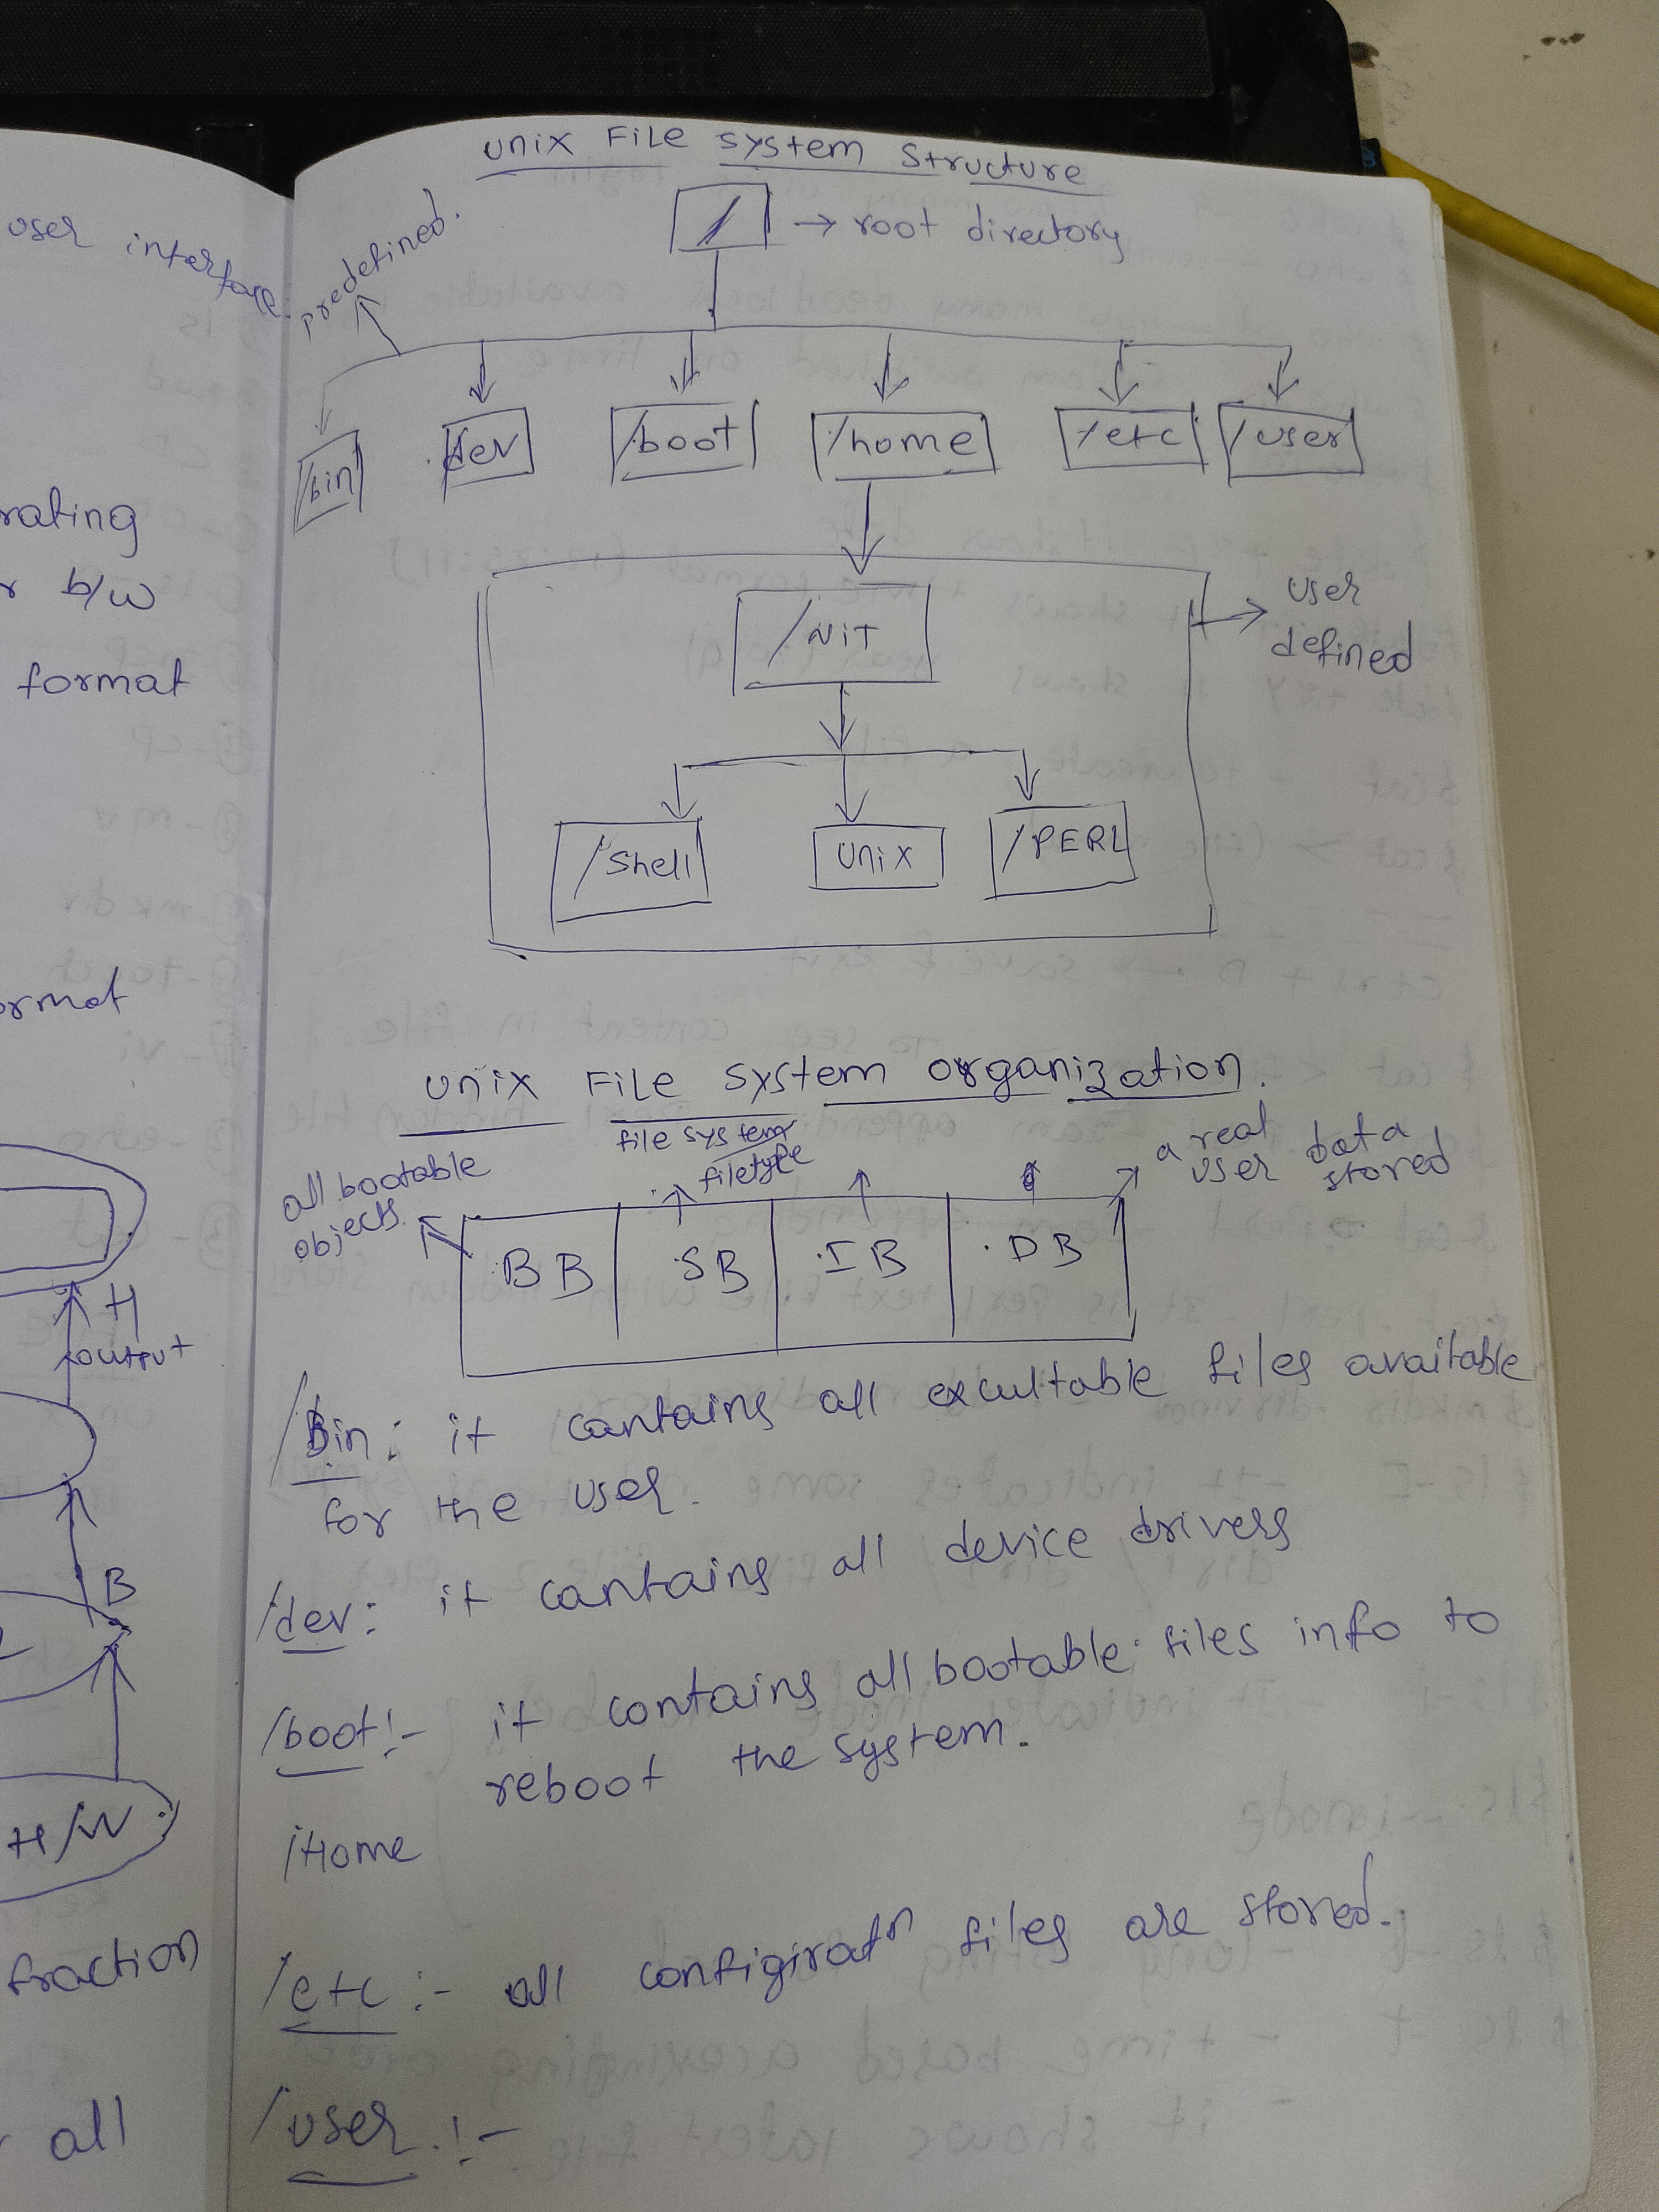 user interface.
rating
r b/w
format
ormat
H
output
B
H/W
fraction
all
Unix File System Structure
/ → root directory
predefined.
/bin
/dev
/boot
/home
/etc
/user
/NIT
user
defined
/Shell
Unix
/PERL
Unix File System Organization.
all bootable
objects.
file system
filetype
a real
user data
stored
BB
SB
IB
DB
/Bin: it contains all excultable files available
for the user.
/dev: it contains all device drivers
/boot:- it contains all bootable files info to
reboot the system.
/Home
/etc:- all configiratn files are stored.
/user:-